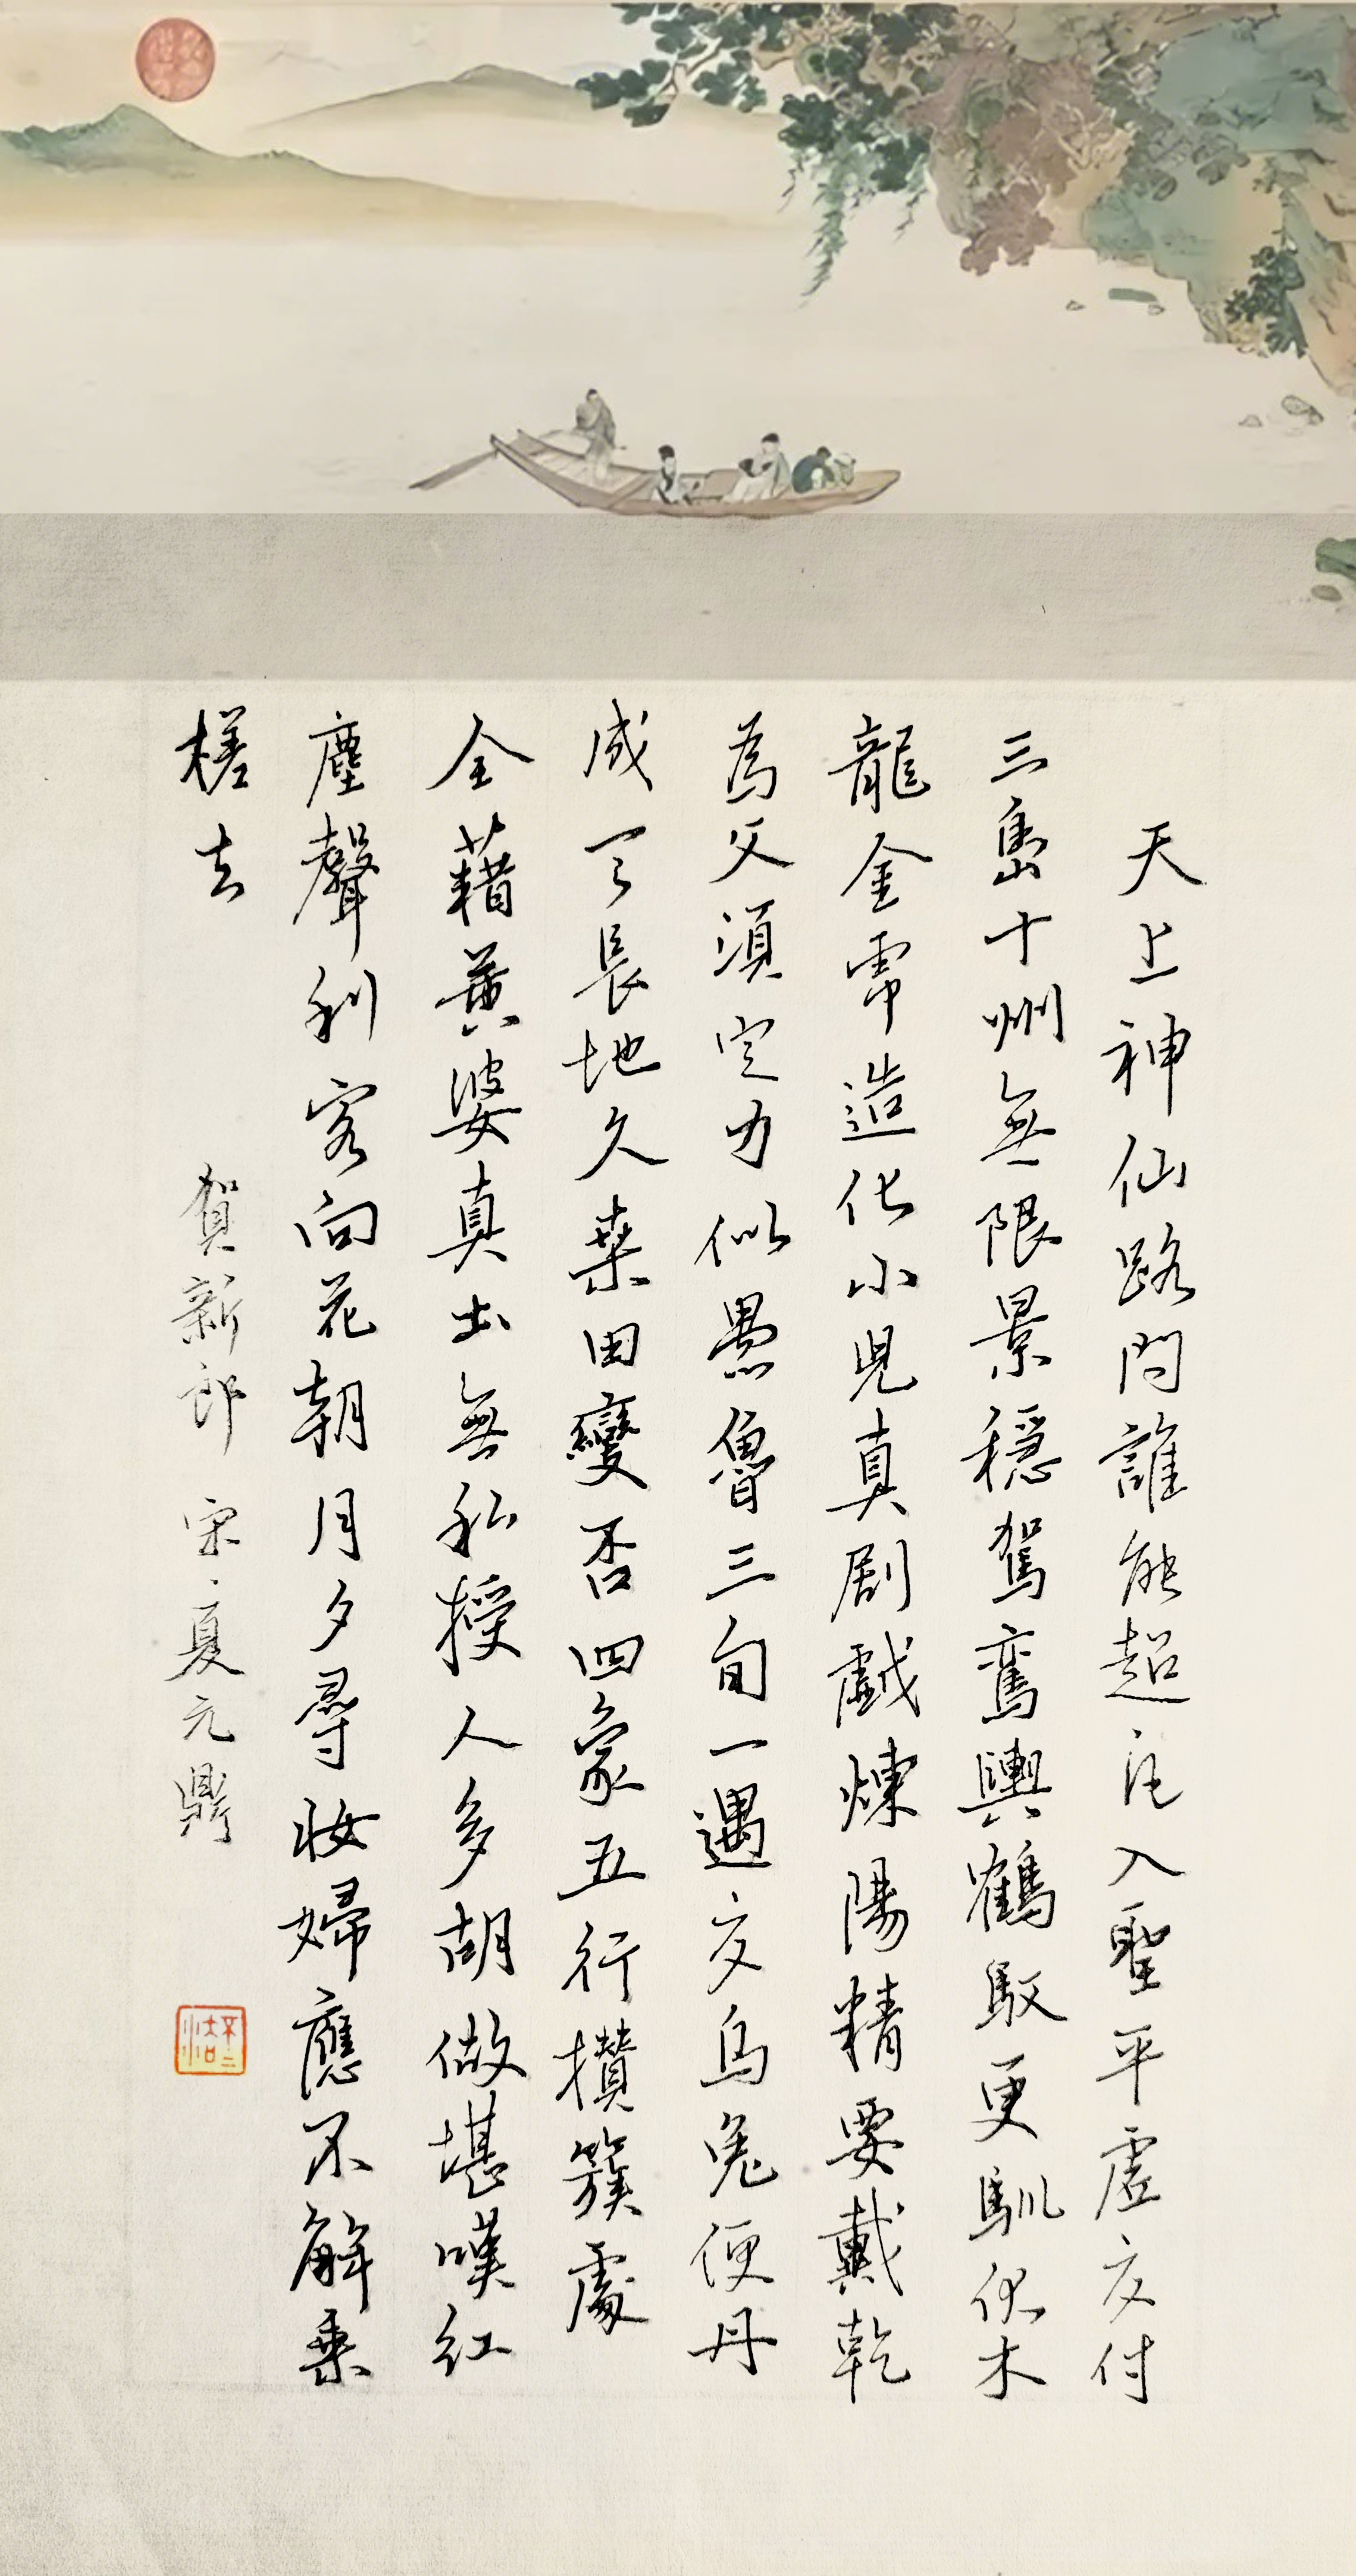 天上神仙路問誰能超凡入聖平虛交付
三島十州無限景穩駕鸞輿鶴馭更馴伏木
龍金虎造化小兒真劇戲煉陽精要戴乾
為父須定力似愚魯三旬一遇交烏兔便丹
成天長地久桑田變否四象五行攢簇處
全藉黃婆真土無私授人多胡做堪嘆紅
塵聲利客向花朝月夕尋妝婦應不解乘
槎去
賀新郎 宋·夏元鼎